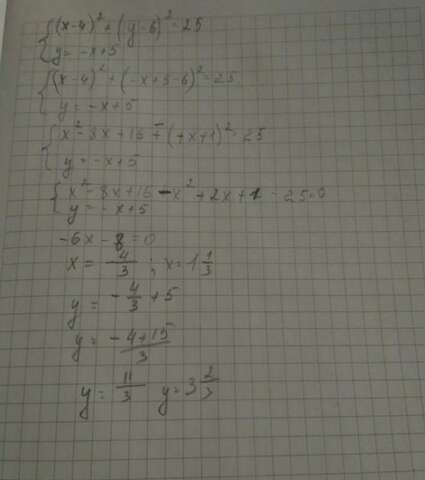 {(x-4)²+(y-6)²=25
{y=-x+5
{(x-4)²+(-x+5-6)²=25
{y=-x+5
{x²-8x+16-(+x+1)²=25
{y=-x+5
{x²-8x+16-x²+2x+1-25=0
{y=-x+5
-6x-8=0
x=4/3; x=1 1/3
y=-4/3+5
y=-4+15/3
y=11/3 y=3 2/3